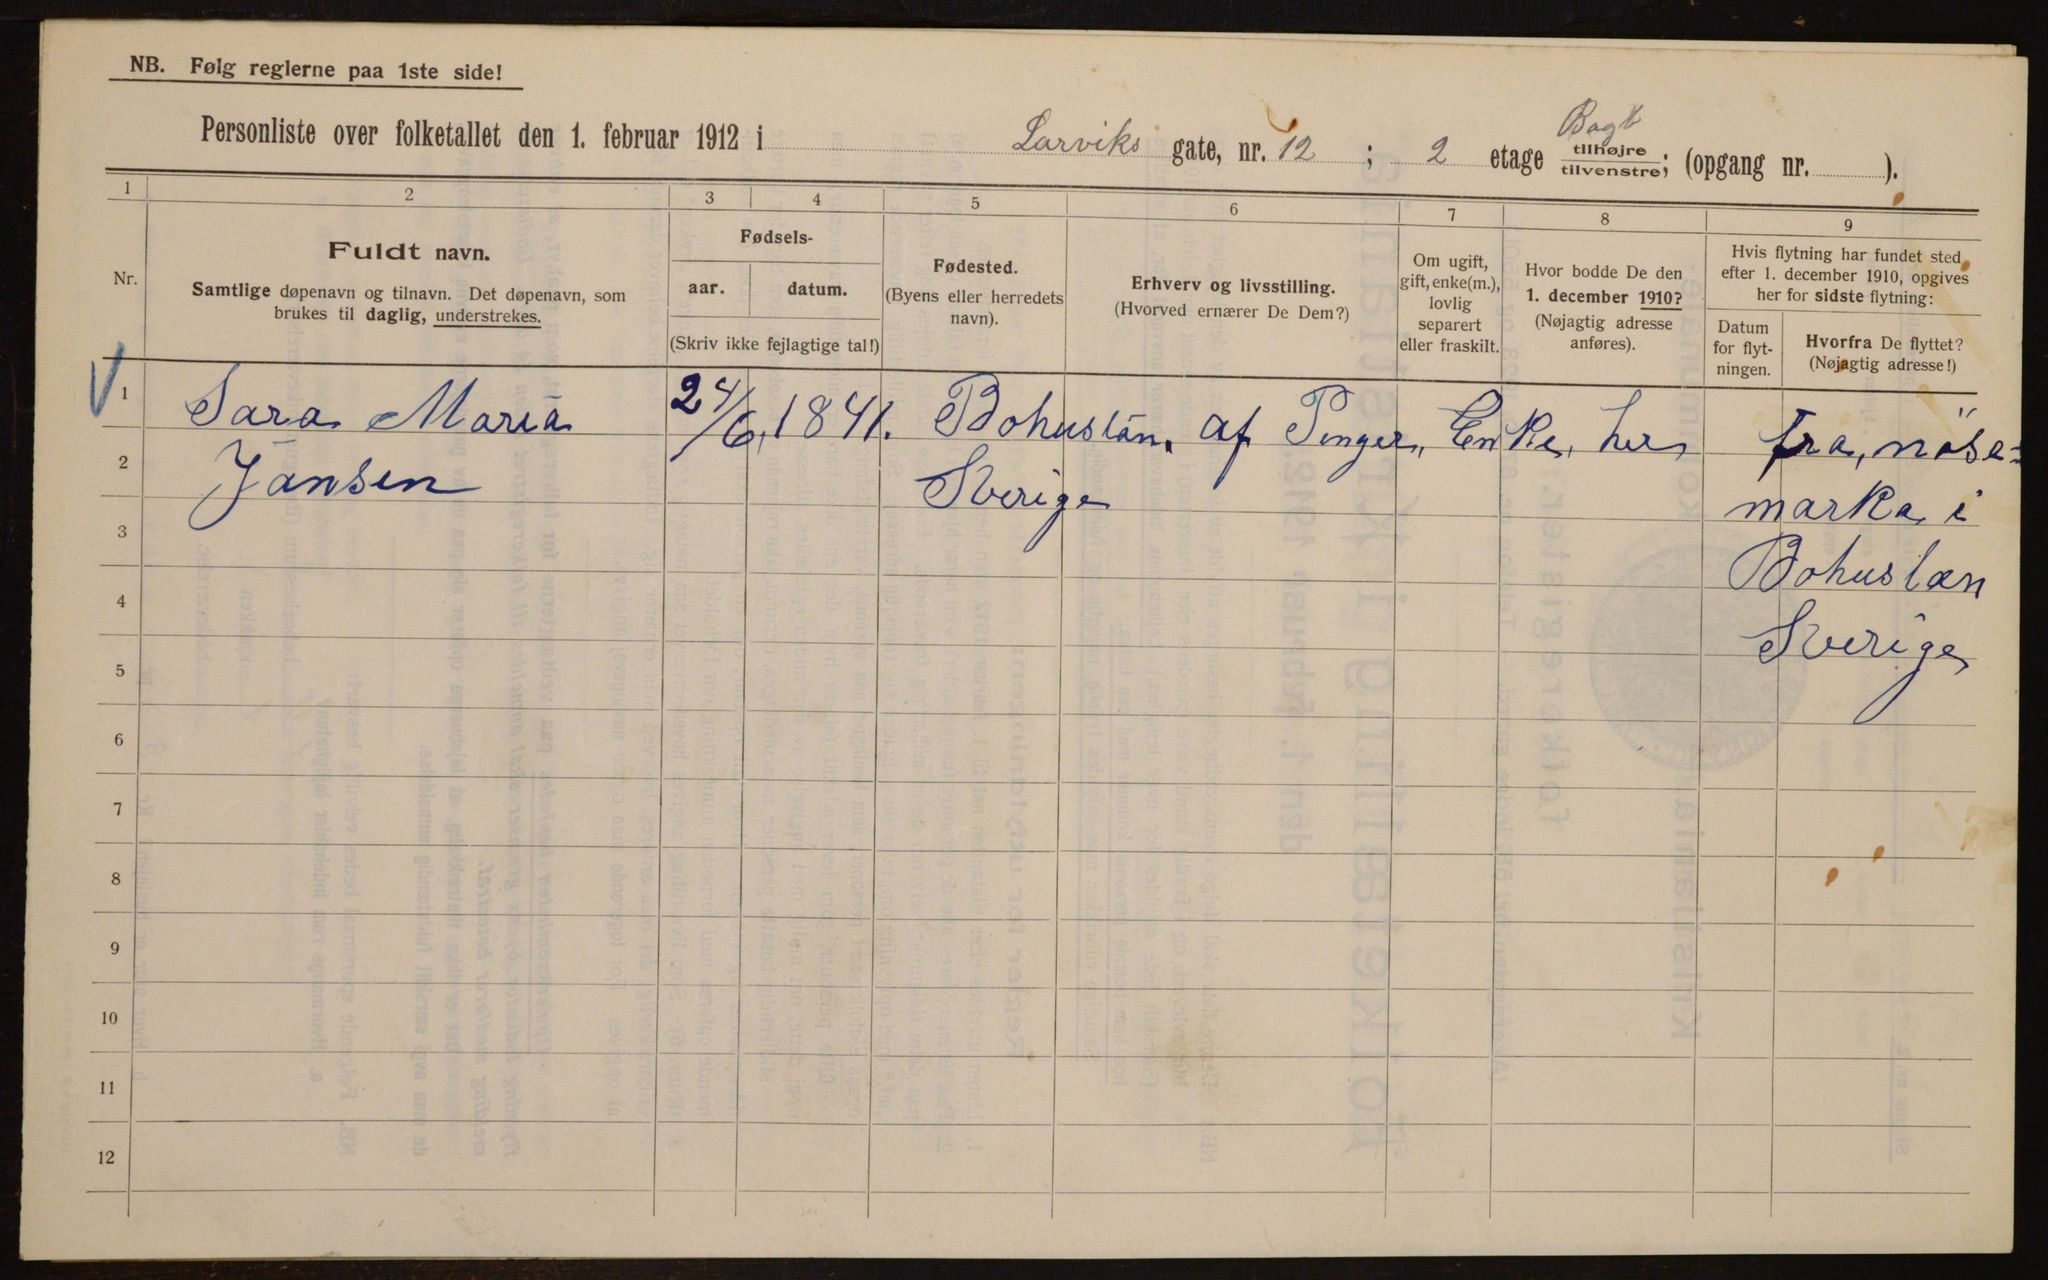 NB. Følg reglerne paa 1ste side!
Personliste over folketallet den 1. februar 1912 i Larviks gate, nr. 12 ; 2 etage Bagt tilhøjre tilvenstre; (opgang nr. ).
1 2 3 4 5 6 7 8 9
Nr.
Fuldt navn.
Samtlige døpenavn og tilnavn. Det døpenavn, som
brukes til daglig, understrekes.
Fødsels-
aar. datum.
(Skriv ikke fejlagtige tal!)
Fødested.
(Byens eller herredets
navn).
Erhverv og livsstilling.
(Hvorved ernærer De Dem?)
Om ugift,
gift, enke(m.),
lovlig
separert
eller fraskilt.
Hvor bodde De den
1. december 1910?
(Nøjagtig adresse
anføres).
Hvis flytning har fundet sted
efter 1. december 1910, opgives
her for sidste flytning:
Datum
for flyt-
ningen.
Hvorfra De flyttet?
(Nøjagtig adresse!)
1 Sara Maria 24/6, 1841. Bohuslän. af Penger, Enke, her fra, nöse=
2 Jansen Sverige
marka i
3
Bohuslæn
4
Sverige
5
6
7
8
9
10
11
12